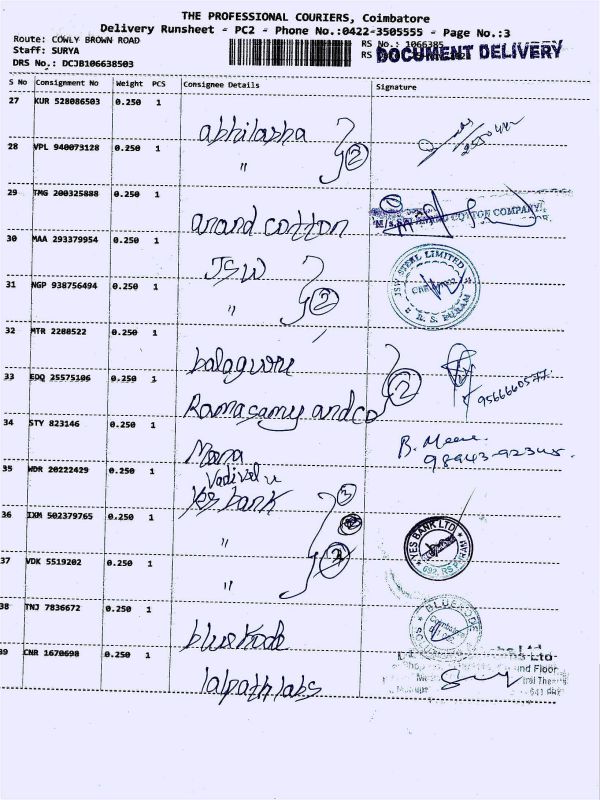 THE PROFESSIONAL COURIERS, Coimbatore
Delivery Runsheet - PC2 - Phone No.:0422-3505555 - Page No.:3
Route: COWLY BROWN ROAD
RS No.: 1066385
Staff: SURYA
RS
DOCUMENT DELIVERY
DRS No.: DCJB106638503
S No Consignment No Weight PCS Consignee Details Signature
27 KUR 528086503 0.250 1
abhilasha
28 VPL 940073128 0.250 1
" 2
29 TMG 200325888 0.250 1
COTTON COMPANY
anand cotton
30 MAA 293379954 0.250 1
JSW
JSW STEEL LIMITED
R. S. PURAM
31 NGP 938756494 0.250 1
" 2
32 MTR 2288522 0.250 1
balaguru
33 EDQ 25575106 0.250 1
2
Ramasamy and co
34 STY 823146 0.250 1
B. Meena
98943-92345
Mana
Vadivelu
35 WDR 20222429 0.250 1
Yes bank 3
36 IXM 502379765 0.250 1
"
YES BANK LTD
37 VDK 5519202 0.250 1
"
38 TNJ 7836672 0.250 1
BLUEKODE
bluekode
39 CNR 1670698 0.250 1
Ltd
und Floor
lalpathlabs
641